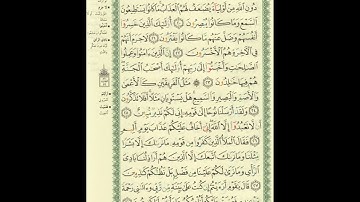 دُونِ ٱللَّهِ مِنۡ أَوۡلِيَآءَۘ يُضَٰعَفُ لَهُمُ ٱلۡعَذَابُۚ مَا كَانُواْ يَسۡتَطِيعُونَ
ٱلسَّمۡعَ وَمَا كَانُواْ يُبۡصِرُونَ ٢٠ أُوْلَٰٓئِكَ ٱلَّذِينَ خَسِرُوٓاْ
أَنفُسَهُمۡ وَضَلَّ عَنۡهُم مَّا كَانُواْ يَفۡتَرُونَ ٢١ لَا جَرَمَ أَنَّهُمۡ
فِي ٱلۡأٓخِرَةِ هُمُ ٱلۡأَخۡسَرُونَ ٢٢ إِنَّ ٱلَّذِينَ ءَامَنُواْ وَعَمِلُواْ
ٱلصَّٰلِحَٰتِ وَأَخۡبَتُوٓاْ إِلَىٰ رَبِّهِمۡ أُوْلَٰٓئِكَ أَصۡحَٰبُ ٱلۡجَنَّةِۖ
هُمۡ فِيهَا خَٰلِدُونَ ٢٣ ۞ مَثَلُ ٱلۡفَرِيقَيۡنِ كَٱلۡأَعۡمَىٰ
وَٱلۡأَصَمِّ وَٱلۡبَصِيرِ وَٱلسَّمِيعِۚ هَلۡ يَسۡتَوِيَانِ مَثَلًاۚ أَفَلَا تَذَكَّرُونَ
٢٤ وَلَقَدۡ أَرۡسَلۡنَا نُوحًا إِلَىٰ قَوۡمِهِۦٓ إِنِّي لَكُمۡ نَذِيرٞ مُّبِينٌ ٢٥
أَن لَّا تَعۡبُدُوٓاْ إِلَّا ٱللَّهَۖ إِنِّيٓ أَخَافُ عَلَيۡكُمۡ عَذَابَ يَوۡمٍ أَلِيمٖ
٢٦ فَقَالَ ٱلۡمَلَأُ ٱلَّذِينَ كَفَرُواْ مِن قَوۡمِهِۦ مَا نَرَىٰكَ إِلَّا بَشَرٗا
مِّثۡلَنَا وَمَا نَرَىٰكَ ٱتَّبَعَكَ إِلَّا ٱلَّذِينَ هُمۡ أَرَاذِلُنَا بَادِيَ
ٱلرَّأۡيِ وَمَا نَرَىٰ لَكُمۡ عَلَيۡنَا مِن فَضۡلِۭ بَلۡ نَظُنُّكُمۡ كَٰذِبِينَ
٢٧ قَالَ يَٰقَوۡمِ أَرَءَيۡتُمۡ إِن كُنتُ عَلَىٰ بَيِّنَةٖ مِّن رَّبِّي وَءَاتَىٰنِي رَحۡمَةٗ